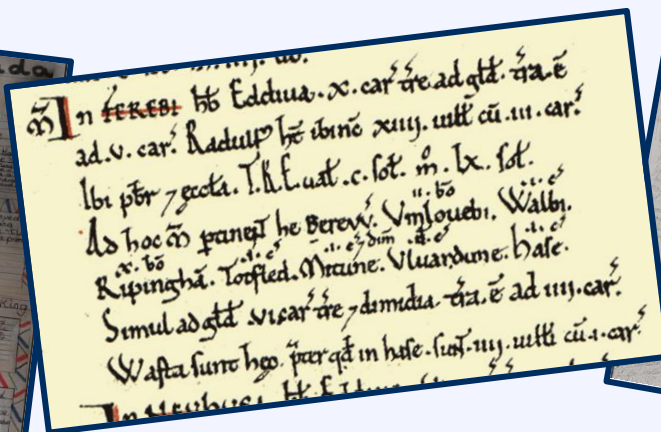 M̃ In FEREBI h̄b Eddiua. x. car̃ tr̃e ad gld. Tr̃a. ē
ad. v. car̃. Radulf hē ibinē xiiij. uiłł cū. iii. car̃.
Ibi p̄br ⁊ æccła. T.R.E. uał. c. soł. m̊. lx. soł.
Ad hoc M̃ ptineƞt he Berew̃. Vmlouebi. Walbi.
Ripinghā. Totfled. Mitune. Vluardune. Hase.
Simul ad gld. vi car̃ tr̃e ⁊ dimidia. Tr̃a. ē ad iiij. car̃.
Wasta sunt hęc. p̄ter qd in hase. sunt. iiij. uiłłi cū. i. car̃.